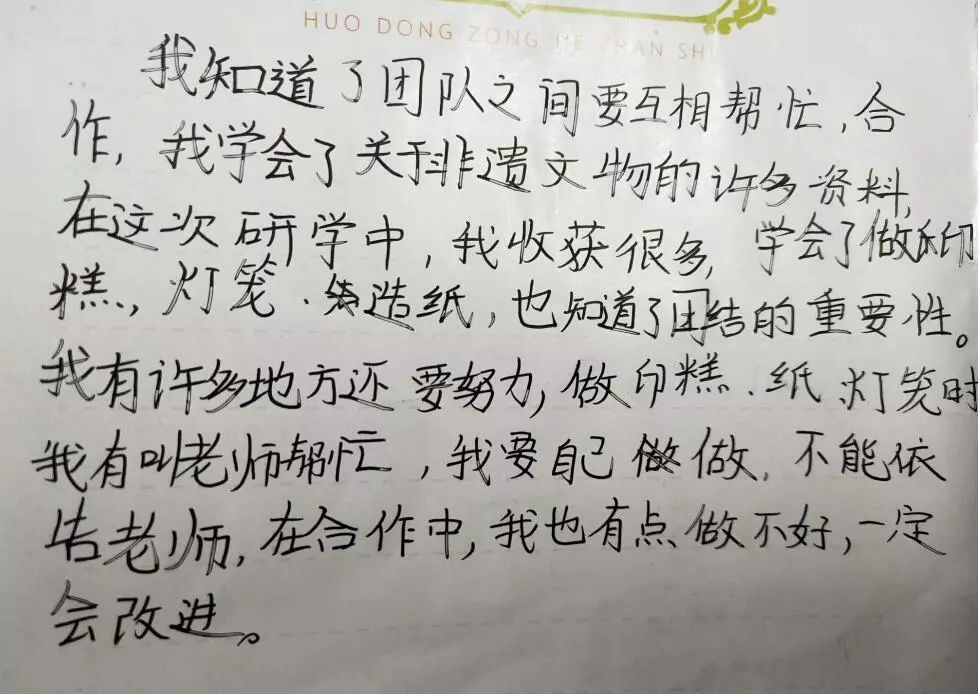 HUO DONG ZONG JIE ZHAN SHI
我知道了团队之间要互相帮忙,合
作,我学会了关于非遗文物的许多资料,
在这次研学中,我收获很多,学会了做印
糕、灯笼、造纸,也知道了团结的重要性。
我有许多地方还要努力,做印糕、纸灯笼时
我有叫老师帮忙,我要自己做,不能依
告老师,在合作中,我也有点做不好,一定
会改进。